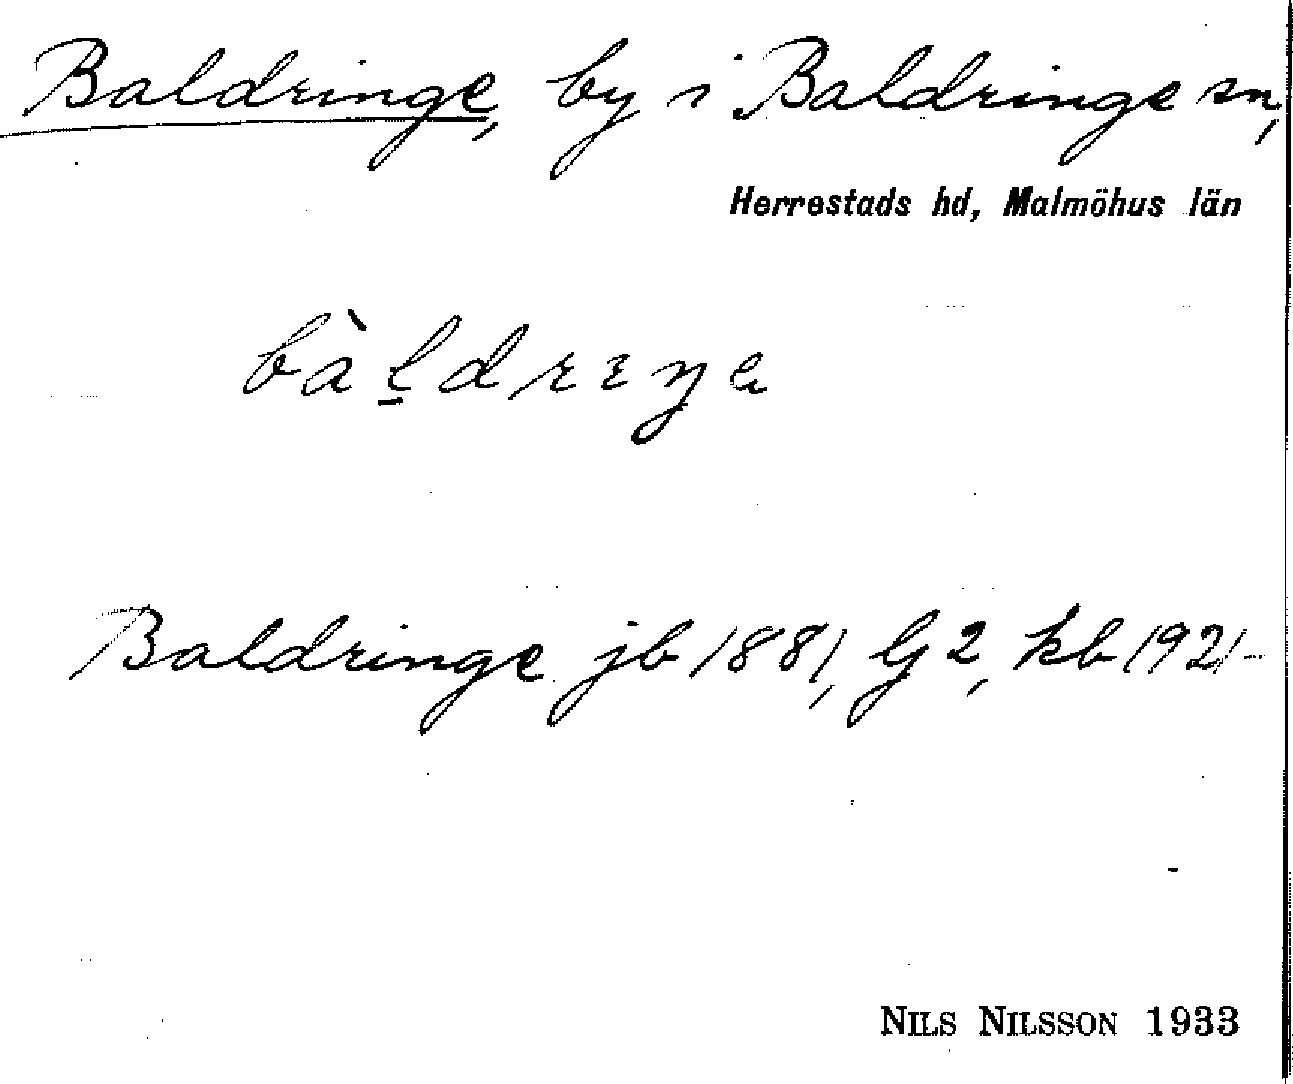 Baldringe, by i Baldringe sn,
Herrestads hd, Malmöhus län
bàl̠drɪŋə
Baldringe jb 1881, G 2, kb 1921-
NILS NILSSON 1933